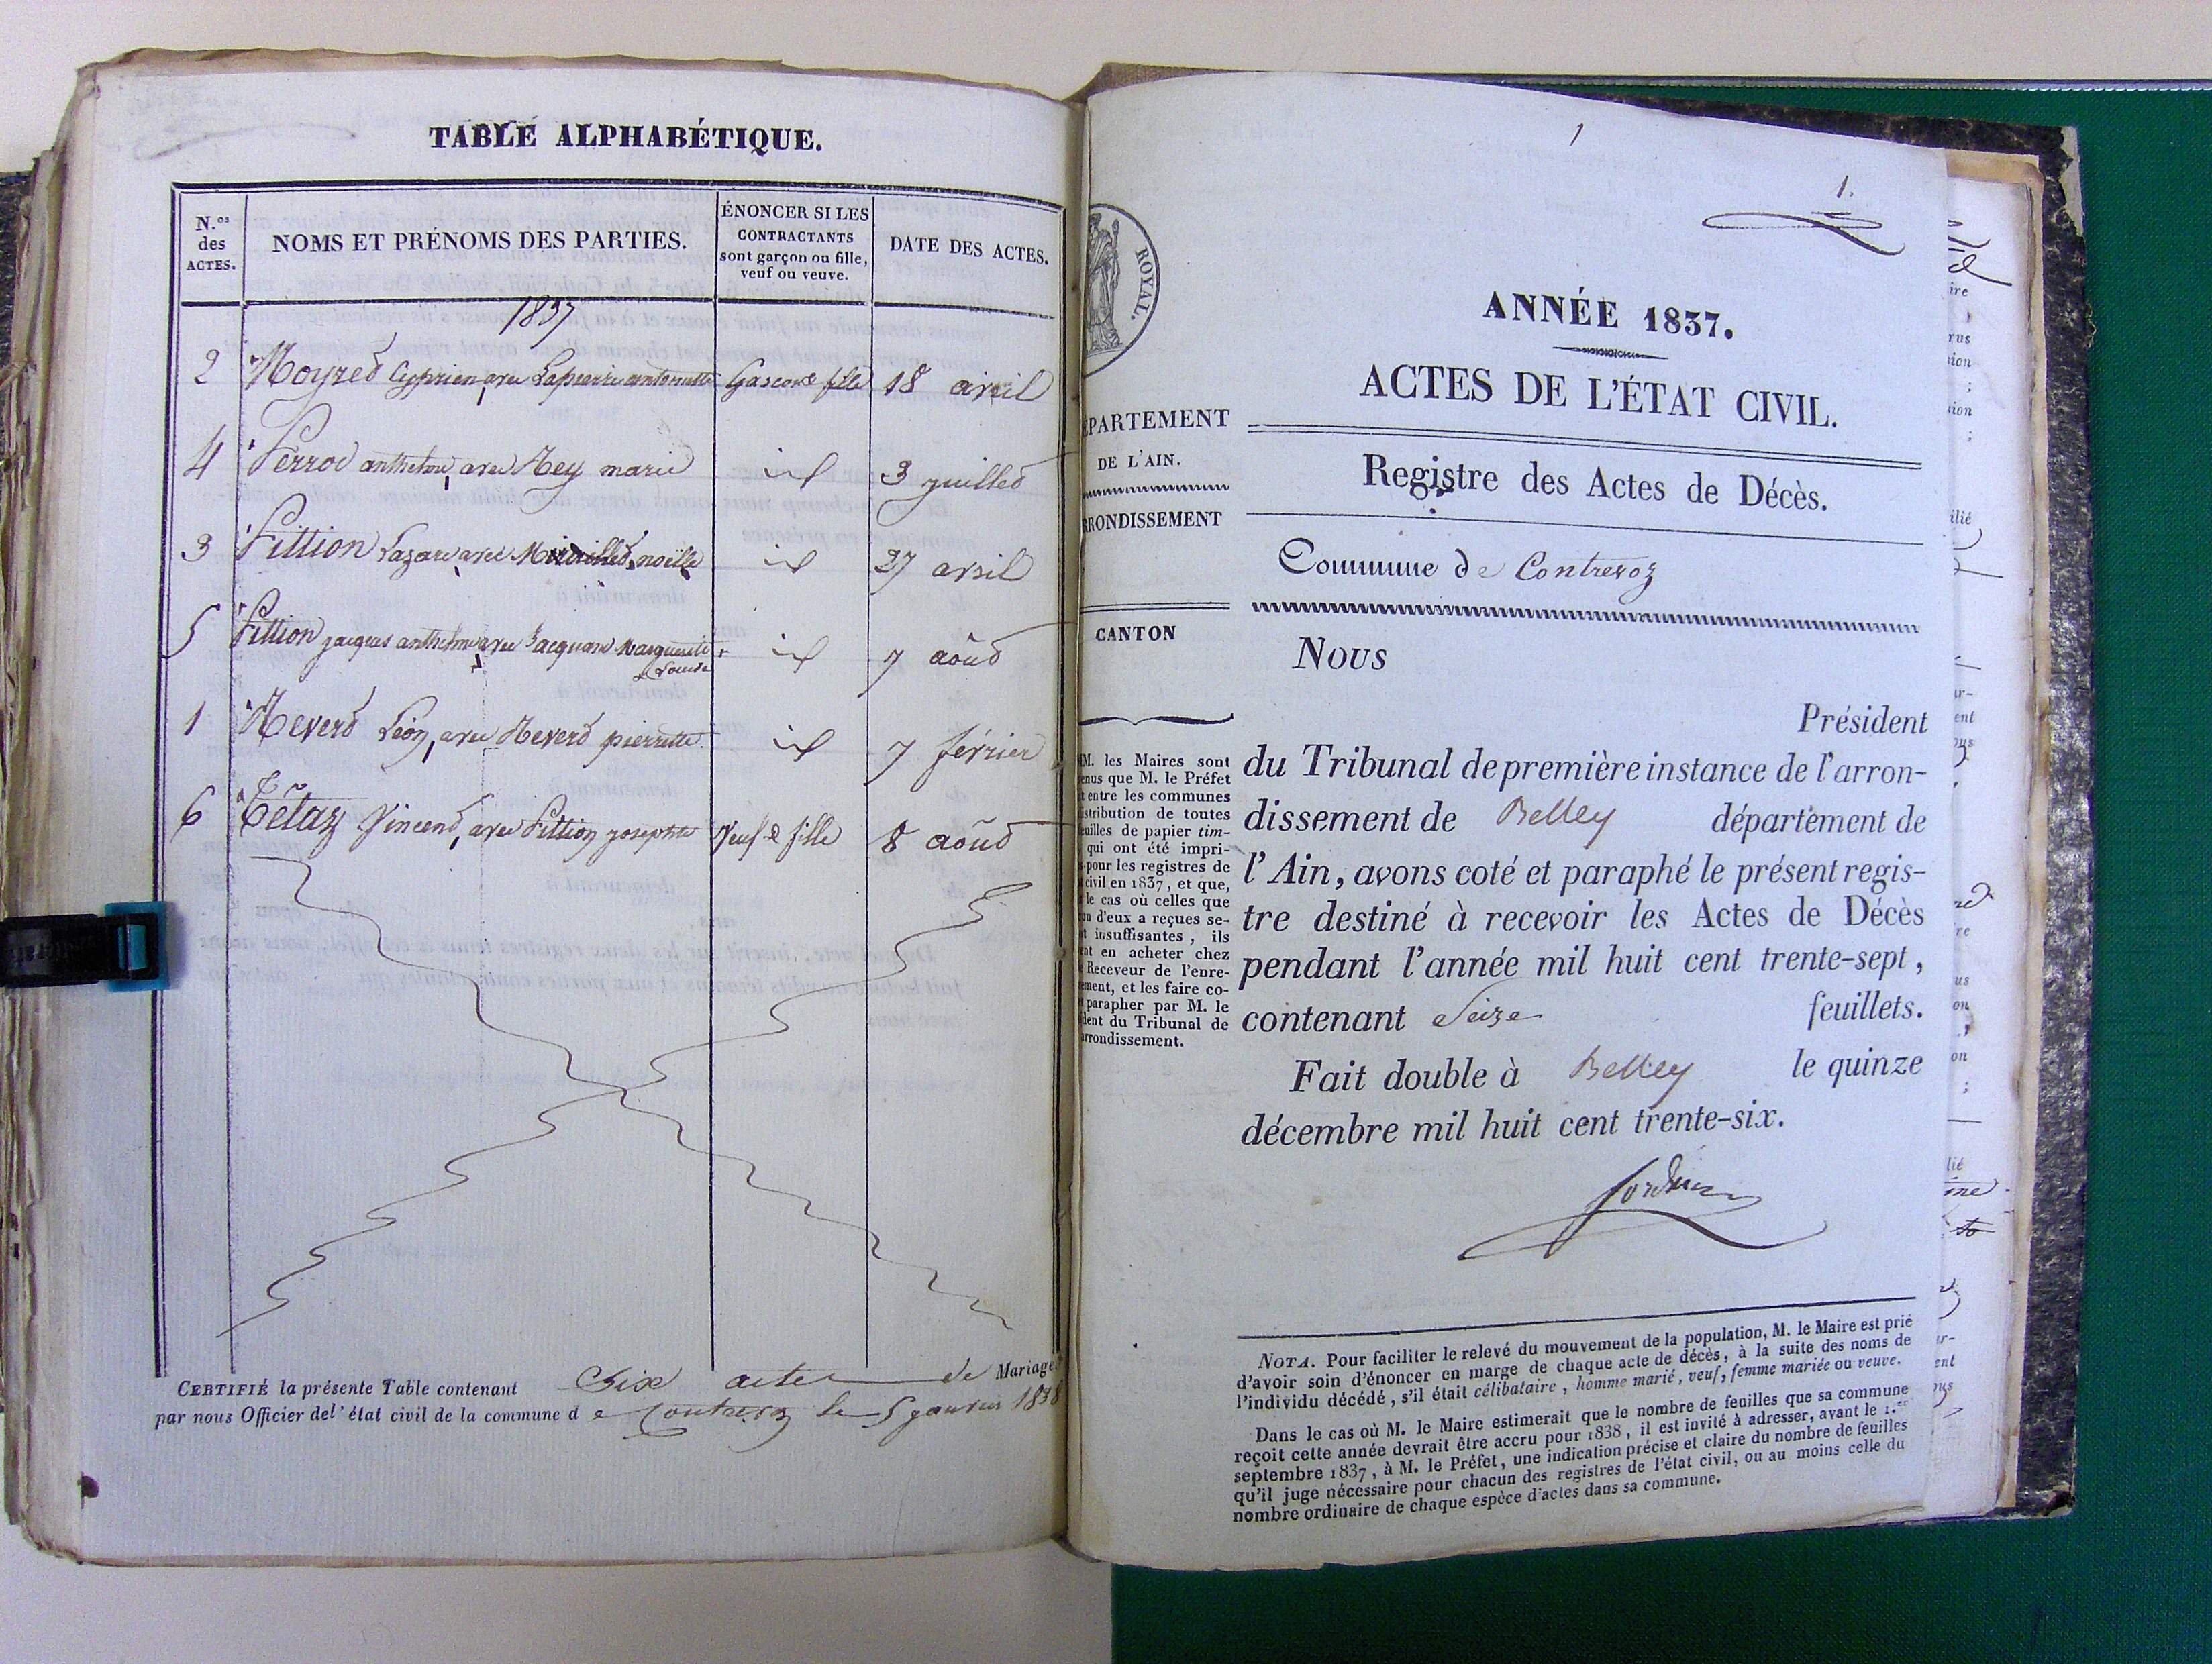 TABLE ALPHABÉTIQUE.
N.os des ACTES.
NOMS ET PRÉNOMS DES PARTIES.
ÉNONCER SI LES CONTRACTANTS sont garçon ou fille, veuf ou veuve.
DATE DES ACTES.
1837
2 Moyred Cyprien, avec Lapierre antoinette 18 avril
4 Perrod anthelme, avec Rey marie id 3 juilled
3 Pittion Lazare, avec noëlle id 27 avril
5 Pittion jacques anthelme avec Jacquand Marguerite id 7 aôud
Louise
1 Reverd Léon, avec Reverd pierrette id 7 février
6 Tétaz Vincend, avec Pittion josephte Veuf & fille 8 aôud
CERTIFIÉ la présente Table contenant Six actes de Mariage
par nous Officier del'état civil de la commune d e Contrevoz le 5 janvier 1838
1
1.
ROYAL.
ANNÉE 1837.
ACTES DE L'ÉTAT CIVIL.
PARTEMENT
DE L'AIN.
RONDISSEMENT
CANTON
M. les Maires sont
enus que M. le Préfet
t entre les communes
istribution de toutes
euilles de papier tim-
qui ont été impri-
pour les registres de
civil en 1837, et que,
le cas où celles que
un d'eux a reçues se-
t insuffisantes, ils
ent en acheter chez
Receveur de l'enre-
ement, et les faire co-
parapher par M. le
dent du Tribunal de
rrondissement.
Registre des Actes de Décès.
Commune de Contrevoz
Nous
Président
du Tribunal de première instance de l'arron-
dissement de Belley département de
l'Ain, avons coté et paraphé le présent regis-
tre destiné à recevoir les Actes de Décès
pendant l'année mil huit cent trente-sept,
contenant Seize feuillets.
Fait double à Belley le quinze
décembre mil huit cent trente-six.
NOTA. Pour faciliter le relevé du mouvement de la population, M. le Maire est prié
d'avoir soin d'énoncer en marge de chaque acte de décès, à la suite des noms de
l'individu décédé, s'il était célibataire, homme marié, veuf, femme mariée ou veuve.
Dans le cas où M. le Maire estimerait que le nombre de feuilles que sa commune
reçoit cette année devrait être accru pour 1838, il est invité à adresser, avant le 1.er
septembre 1837, à M. le Préfet, une indication précise et claire du nombre de feuilles
qu'il juge nécessaire pour chacun des registres de l'état civil, ou au moins celle du
nombre ordinaire de chaque espèce d'actes dans sa commune.